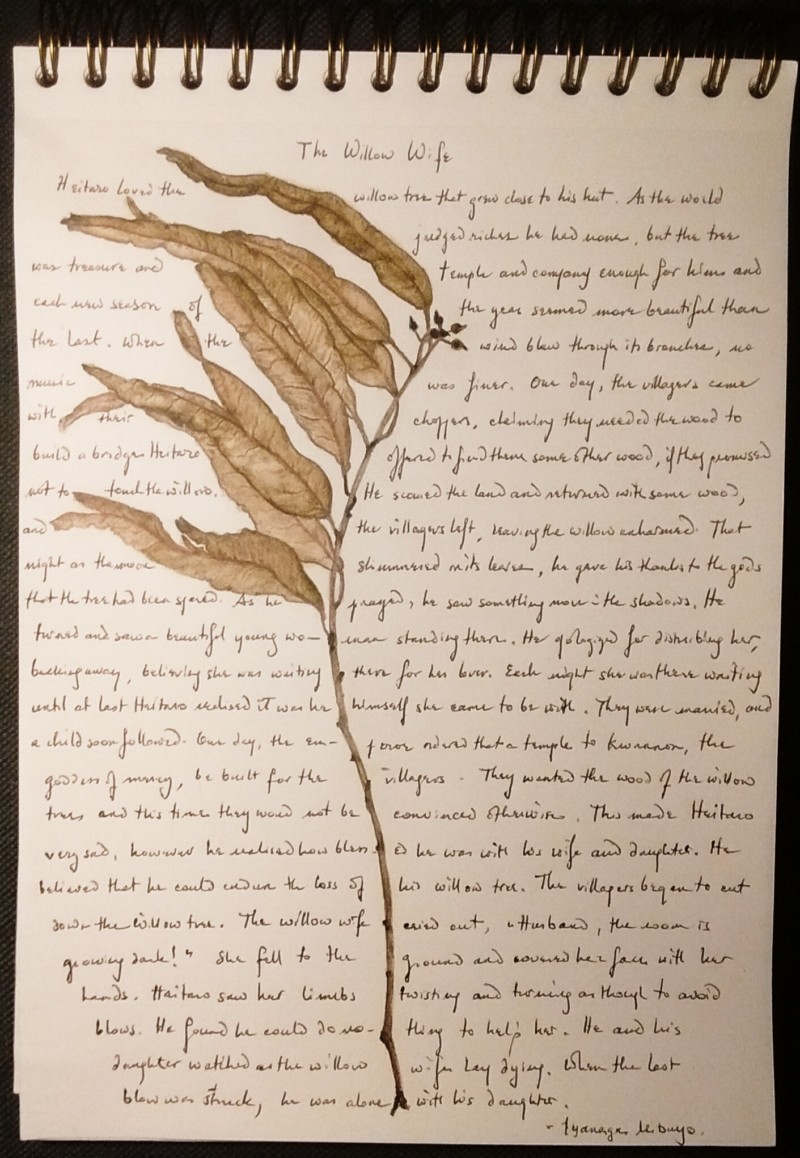 The Willow Wife
Heitaro loved the willow tree that grew close to his hut. As the world
judged riches he had none, but the tree
was treasure and temple and company enough for him and
each new season of the year seemed more beautiful than
the last. When the wind blew through its branches, no
music was finer. One day, the villagers came
with their choppers, claiming they needed the wood to
build a bridge. Heitaro offered to find them some other wood, if they promised
not to touch the willow. He scoured the land and returned with some wood,
and the villagers left, leaving the willow unharmed. That
night as the moon shimmered on its leaves, he gave his thanks to the gods
that the tree had been spared. As he prayed, he saw something move in the shadows. He
turned and saw a beautiful young wo- man standing there. He apologized for disturbing her,
backing away, believing she was waiting there for her lover. Each night she was there waiting
until at last Heitaro realised it was he himself she came to be with. They were married, and
a child soon followed. One day, the em- peror ordered that a temple to Kwannon, the
goddess of mercy, be built for the villagers. They wanted the wood of the willow
trees and this time they would not be convinced otherwise. This made Heitaro
very sad, however he realised how bless- ed he was with his wife and daughter. He
believed that he could endure the loss of his willow tree. The villagers began to cut
down the willow tree. The willow wife cried out, "Husband, the room is
growing dark!" She fell to the ground and covered her face with her
hands. Heitaro saw her limbs twisting and turning as though to avoid
blows. He found he could do no- thing to help her. He and his
daughter watched as the willow wife lay dying. When the last
blow was struck, he was alone with his daughter.